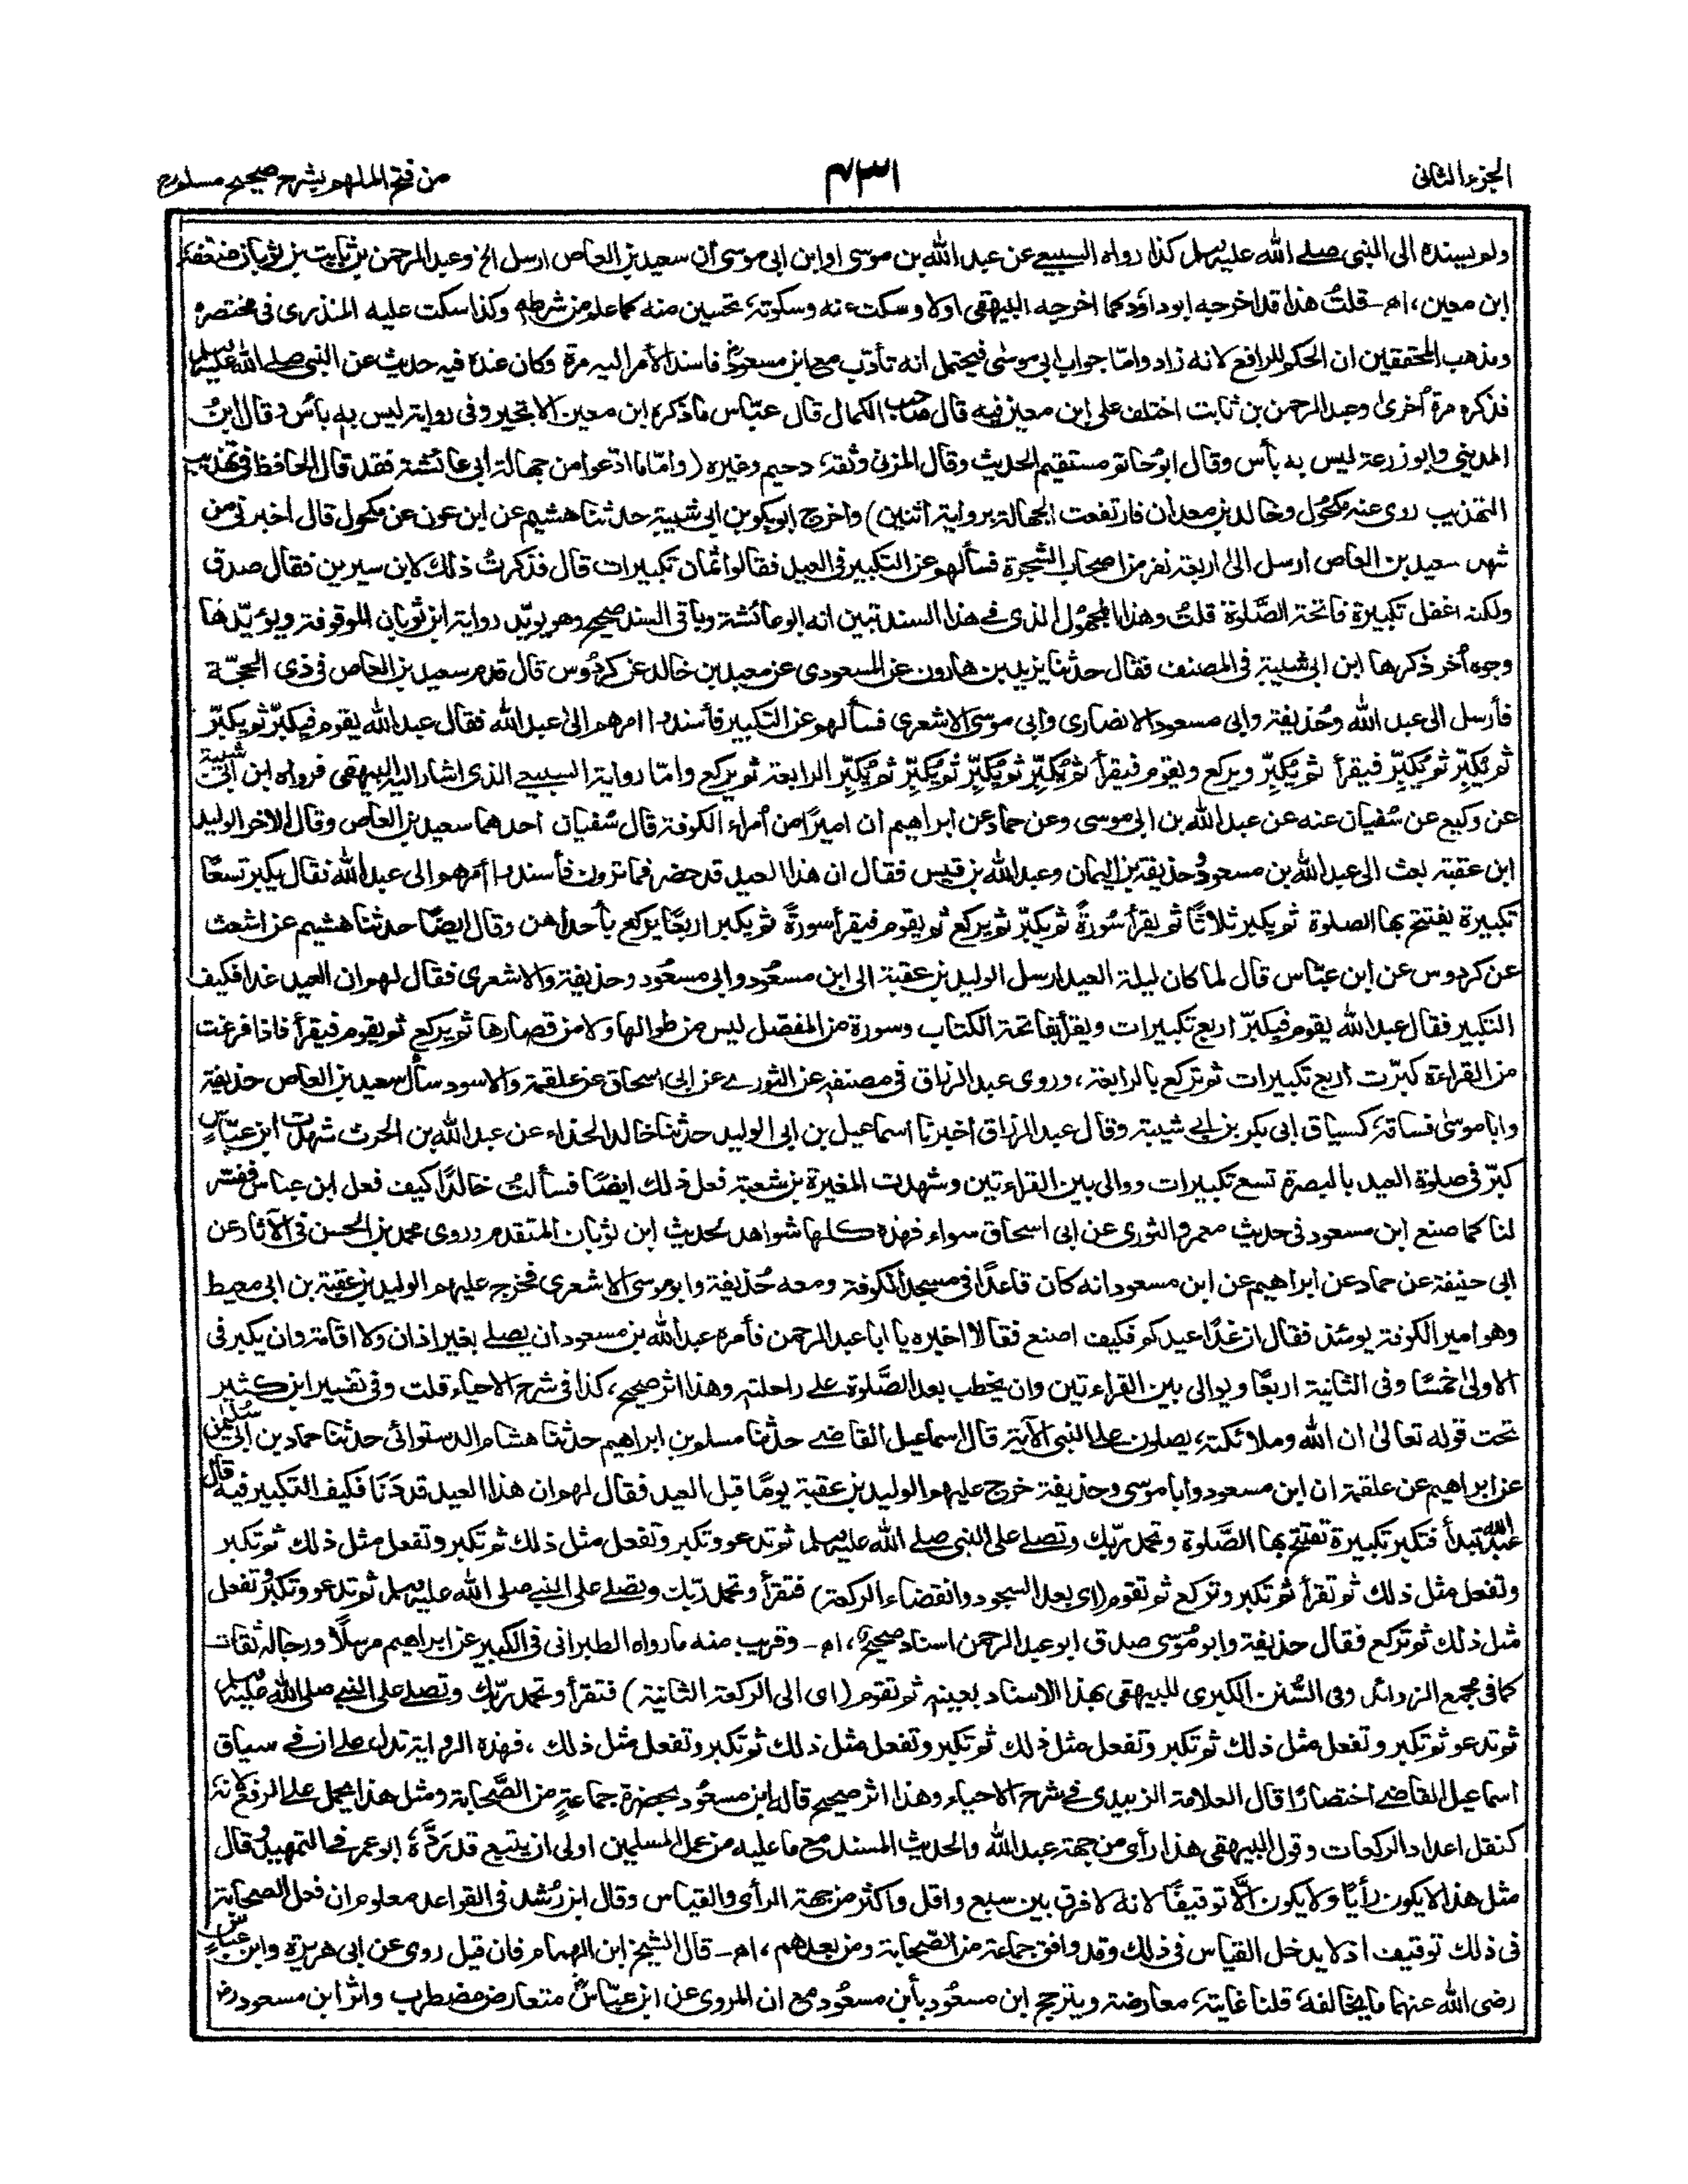 الجزء الثانى
٤٣١
من فتح الملهم بشرح صحيح مسلم
ولم يسنده الى النبى صلے الله عليه وسلم كذا رواه السبيعى عن عبد الله بن موسى او ابن ابى موسى ان سعيد بن العاص ارسل الخ وعبد الرحمن بن ثابت بن ثوبان ضعفه
ابن معين، اه- قلتُ هذا قد اخرجه ابو داؤد كما اخرجه البيهقى اولا وسكت عنه وسكوته تحسين منه كما علم من شرطه وكذا سكت عليه المنذرى فى مختصره
ومذهب المحققين ان الحكم للرافع لانه زاد وامّا جواب ابى موسٰى فيحتمل انه تأدّب مع ابن مسعود فاسند الأمر اليه مرة وكان عنده فيه حديث عن النبى صلے الله عليه وسلم
فذكره مرة أخرىٰ وعبد الرحمن بن ثابت اختلف على ابن معين فيه قال صاحب الكمال قال عبّاس ما ذكره ابن معين الا بخير وفى رواية ليس به بأس وقال ابنُ
المدينى وابو زرعة ليس به بأس وقال ابوُ حاتم مستقيم الحديث وقال المزنى وثقه دحيم وغيره (وامّا ما ادّعوا من جهالة ابى عائشة فقد قال الحافظ فى تهذيب
التهذيب روى عنه مكحُول وخالد بن معدان فارتفعت الجهالة برواية اثنين) واخرج ابو بكر بن ابى شيبة حدثنا هشيم عن ابن عون عن مكحول قال اخبرنى من
شهد سعيد بن العاص ارسل الىٰ اربعة نفر من اصحاب الشجرة فسألهم عن التكبير فى العيد فقالوا ثمان تكبيرات قال فذكرتُ ذلك لابن سيرين فقال صدق
ولكنه اغفل تكبيرة فاتحة الصَّلوة قلتُ وهذا المجهُول الذى فے هذا السند تبين انه ابو عائشة وباقى السند صحيح وهو يؤيّد رواية ابن ثوبان الموقوفة ويؤيّدها
وجوه أخر ذكرها ابن ابى شيبة فى المصنف فقال حدثنا يزيد بن هارون عن المسعودى عن معبد بن خالد عن كردُوس قال قدم سعيد بن العاص فى ذى الحجّة
فأرسل الى عبد الله وحُذيفة وابى مسعود الانصارى وابى موسى الاشعرى فسألهم عن التكبير فأسندوا امرهم الىٰ عبد الله فقال عبد الله يقوم فيكبّر ثم يكبّر
ثم يُكبّر ثم يُكبّر فيقرأ ثم يُكبّر ويركع ويقوم فيقرأ ثم يُكبّر ثم يُكبّر ثم يُكبّر ثم يُكبّر الرابعة ثم يركع وامّا رواية السبيعے الذى اشار اليه البيهقى فرواه ابن ابى شيبة
عن وكيع عن سُفيان عنه عن عبد الله بن ابى موسى وعن حماد عن ابراهيم ان اميرًا من أمراء الكوفة قال سُفيان احدهما سعيد بن العاص وقال الاٰخر الوليد
ابن عقبة بعث الى عبد الله بن مسعود وحذيفة بن اليمان وعبد الله بن قيس فقال ان هذا العيد قد حضر فما ترون فأسندوا أمرهم الى عبد الله فقال يكبر تسعًا
تكبيرة يفتتح بها الصلوة ثم يكبر ثلاثًا ثم يقرأ سُورةً ثم يكبّر ثم يركع ثم يقوم فيقرأ سورةً ثم يكبر اربعًا يركع بأحداهن وقال ايضًا حدثنا هشيم عن اشعث
عن كردوس عن ابن عبّاس قال لما كان ليلة العيد ارسل الوليد بن عقبة الى ابن مسعُود وابى مسعُود وحذيفة والاشعرى فقال لهم ان العيد غدا فكيف
التكبير فقال عبد الله يقوم فيكبّر اربع تكبيرات ويقرأ بفاتحة الكتاب وسورة من المفصّل ليس من طوالها ولا من قصارها ثم يركع ثم يقوم فيقرأ فاذا فرغت
من القراءة كبّرت اربع تكبيرات ثم تركع بالرابعة، وروى عبد الرزاق فى مصنفه عن الثورے عن ابى اسحاق عن علقمة والاسود سأل سعيد بن العاص حذيفة
وابا موسىٰ فساقه كسياق ابى بكر بن ابى شيبة وقال عبد الرزاق أخبرنا اسماعيل بن ابى الوليد حدثنا خالد الحذاء عن عبد الله بن الحرث شهدت ابن عبّاس
كبّر فى صلوة العيد بالبصرة تسع تكبيرات ووالى بين القراءتين وشهدت المغيرة بن شعبة فعل ذلك ايضًا فسألتُ خالدًا كيف فعل ابن عباس ففسّر
لنا كما صنع ابن مسعود فى حديث معمر والثورى عن ابى اسحاق سواء فهذه كلها شواهد لحديث ابن ثوبان المتقدم وروى محمد بن الحسن فى الآثار عن
ابى حنيفة عن حماد عن ابراهيم عن ابن مسعود انه كان قاعدًا فى مسجد الكوفة ومعه حُذيفة وابو موسى الاشعرى فخرج عليهم الوليد بن عقبة بن ابى معيط
وهو امير الكوفة يومئذ فقال ان غدًا عيدكم فكيف اصنع فقالا اخبره يا ابا عبد الرحمن فأمره عبد الله بن مسعود أن يصلے بغير اذان ولا اقامة وان يكبر فى
الاولىٰ خمسًا وفى الثانية اربعًا ويوالى بين القراءتين وان يخطب بعد الصَّلوة علے راحلته وهذا اثر صحيح، كذا فى شرح الاحياء قلت وفى تفسير ابن كثير
تحت قوله تعالىٰ ان الله وملائكته يصلون علے النبى الآية قال اسماعيل القاضے حدثنا مسلم بن ابراهيم حدثنا هشام الدستوائى حدثنا حماد بن ابى سُليمٰن
عن ابراهيم عن علقمة ان ابن مسعود وأبا موسى وحذيفة خرج عليهم الوليد بن عقبة يومًا قبل العيد فقال لهم ان هذا العيد قد دَنَا فكيف التكبير فيه قال
عبد الله تبدأ فتكبر تكبيرة تفتتح بها الصَّلوة وتحمد ربّك وتصلے على النبى صلے الله عليه وسلم ثم تدعو وتكبر وتفعل مثل ذلك ثم تكبر وتفعل مثل ذلك ثم تكبر
وتفعل مثل ذلك ثم تقرأ ثم تكبر وتركع ثم تقوم (اى بعد السجود وانقضاء الركعة) فتقرأ وتحمد ربّك وتصلے على النبے صلى الله عليه وسلم ثم تدعو وتكبر وتفعل
مثل ذلك ثم تركع فقال حذيفة وابو مُوسى صدق ابو عبد الرحمن اسناد صحيح، اه- وقريب منه ما رواه الطبرانى فى الكبير عن ابراهيم مرسلًا ورجاله ثقات
كما فى مجمع الزوائد وفى السُّنن الكبرى للبيهقى بهذا الاسناد بعينه ثم تقوم (اى الى الركعة الثانية) فتقرأ وتحمد ربّك وتصلے على النبے صلى الله عليه وسلم
ثم تدعو ثم تكبر وتفعل مثل ذلك ثم تكبر وتفعل مثل ذلك ثم تكبر وتفعل مثل ذلك ثم تكبر وتفعل مثل ذلك، فهذه الرواية تدل علے ان فے سياق
اسماعيل القاضے اختصارًا قال العلامة الزبيدى فے شرح الاحياء وهذا اثر صحيح قاله ابن مسعُود بحضرة جماعةٍ من الصَّحابة ومثل هذا يحمل علے الرفع لانه
كنقل اعداد الركعات وقول البيهقى هذا رأى من جهة عبد الله والحديث المسند مع ما عليه من عمل المسلمين اولى ان يتبع قد رَدَّهُ ابو عمر فے التمهيد قال
مثل هذا لا يكون رأيًا ولا يكون الّا توقيفًا لانه لا فرق بين سبع واقل واكثر من جهة الرأى والقياس وقال ابن رُشد فى القواعد معلوم ان فعل الصحابة
فى ذلك توقيف اذ لا يدخل القياس فى ذلك وقد وافق جماعة من الصّحابة ومن بعدهم، اه- قال الشيخ ابن الهمام فان قيل روى عن ابى هريرة وابن عباس
رضى الله عنهما ما يخالفه قلنا غايته معارضة ويترجح ابن مسعُود بأبن مسعُود مع ان المروى عن ابن عبّاس متعارض مضطرب واثر ابن مسعود رض